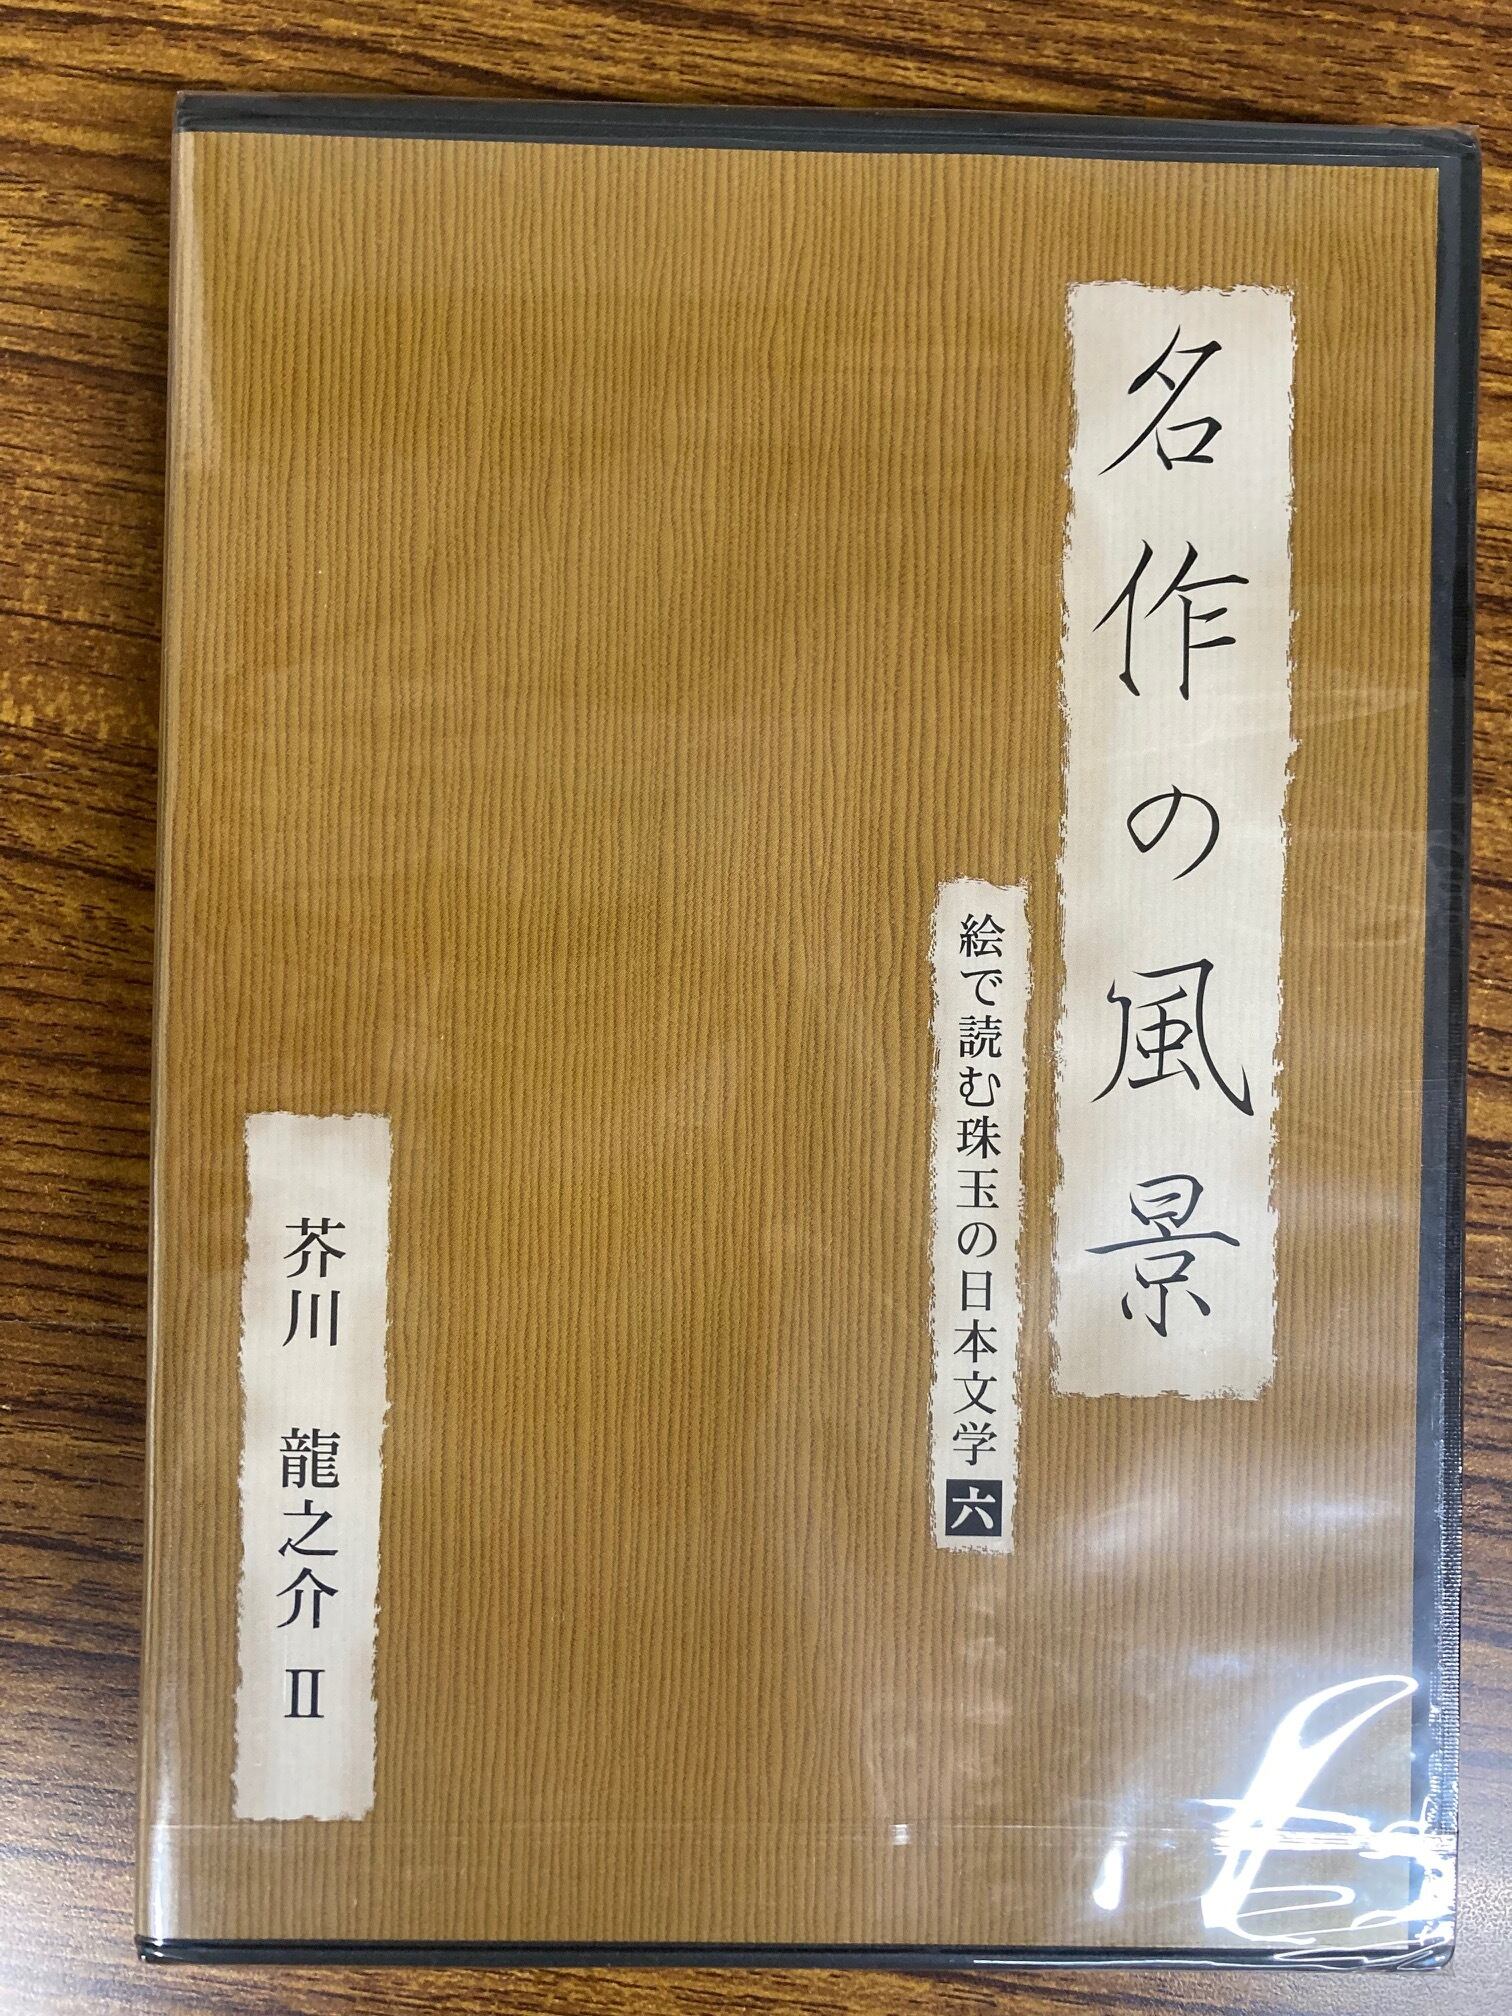 名作の風景
絵で読む珠玉の日本文学 六
芥川 龍之介 II